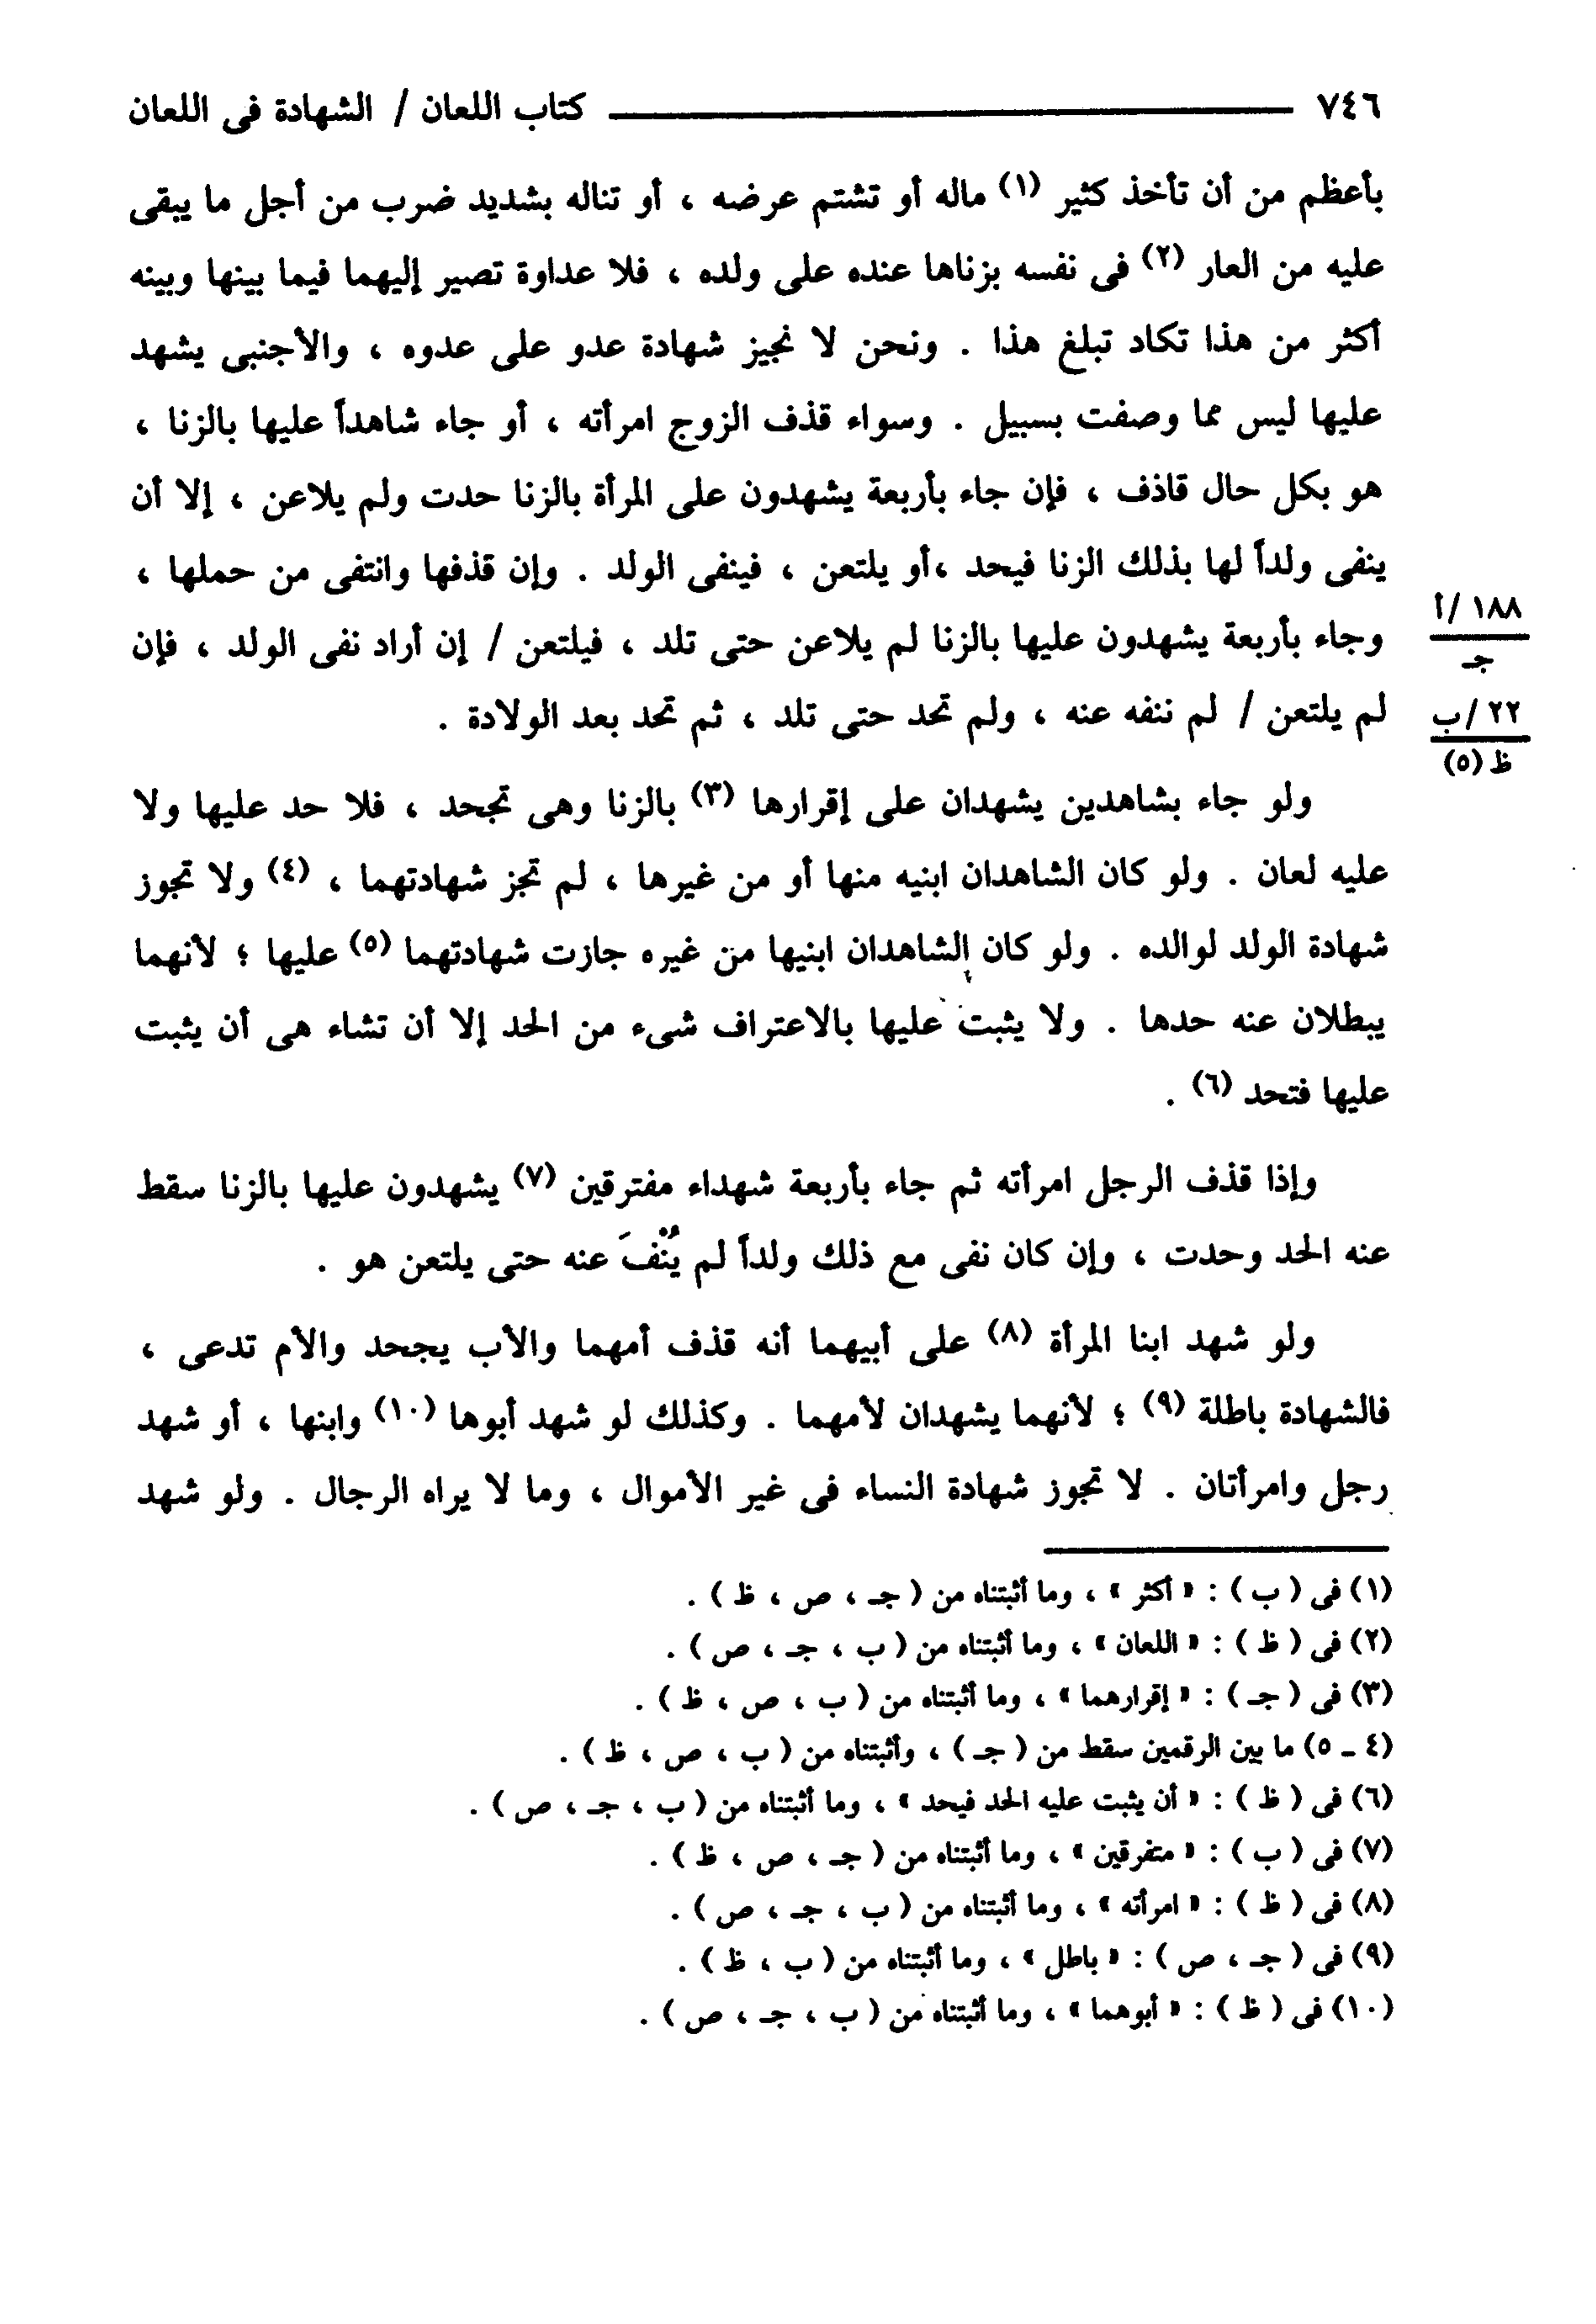 ٧٤٦ كتاب اللعان / الشهادة فى اللعان
بأعظم من أن تأخذ كثير (١) ماله أو تشتم عرضه ، أو تناله بشديد ضرب من أجل ما يبقى
عليه من العار (٢) فى نفسه بزناها عنده على ولده ، فلا عداوة تصير إليهما فيما بينها وبينه
أكثر من هذا تكاد تبلغ هذا . ونحن لا نجيز شهادة عدو على عدوه ، والأجنبى يشهد
عليها ليس مما وصفت بسبيل . وسواء قذف الزوج امرأته ، أو جاء شاهداً عليها بالزنا ،
هو بكل حال قاذف ، فإن جاء بأربعة يشهدون على المرأة بالزنا حدت ولم يلاعن ، إلا أن
ينفى ولداً لها بذلك الزنا فيحد ،أو يلتعن ، فينفى الولد . وإن قذفها وانتفى من حملها ،
١٨٨ /أ
وجاء بأربعة يشهدون عليها بالزنا لم يلاعن حتى تلد ، فيلتعن / إن أراد نفى الولد ، فإن
جـ
لم يلتعن / لم ننفه عنه ، ولم تحد حتى تلد ، ثم تحد بعد الولادة .
٢٢ /ب
ظ (٥)
ولو جاء بشاهدين يشهدان على إقرارها (٣) بالزنا وهى تجحد ، فلا حد عليها ولا
عليه لعان . ولو كان الشاهدان ابنيه منها أو من غيرها ، لم تجز شهادتهما ، (٤) ولا تجوز
شهادة الولد لوالده . ولو كان الشاهدان ابنيها من غيره جازت شهادتهما (٥) عليها ؛ لأنهما
يبطلان عنه حدها . ولا يثبت عليها بالاعتراف شىء من الحد إلا أن تشاء هى أن يثبت
عليها فتحد (٦) .
وإذا قذف الرجل امرأته ثم جاء بأربعة شهداء مفترقين (٧) يشهدون عليها بالزنا سقط
عنه الحد وحدت ، وإن كان نفى مع ذلك ولداً لم يُنْفَ عنه حتى يلتعن هو .
ولو شهد ابنا المرأة (٨) على أبيهما أنه قذف أمهما والأب يجحد والأم تدعى ،
فالشهادة باطلة (٩) ؛ لأنهما يشهدان لأمهما . وكذلك لو شهد أبوها (١٠) وابنها ، أو شهد
رجل وامرأتان . لا تجوز شهادة النساء فى غير الأموال ، وما لا يراه الرجال . ولو شهد
(١) فى ( ب ) : « أكثر » ، وما أثبتناه من ( جـ ، ص ، ظ ) .
(٢) فى ( ظ ) : « اللعان » ، وما أثبتناه من ( ب ، جـ ، ص ) .
(٣) فى ( جـ ) : « إقرارهما » ، وما أثبتناه من ( ب ، ص ، ظ ) .
(٤ ـ ٥) ما بين الرقمين سقط من ( جـ ) ، وأثبتناه من ( ب ، ص ، ظ ) .
(٦) فى ( ظ ) : « أن يثبت عليه الحد فيحد » ، وما أثبتناه من ( ب ، جـ ، ص ) .
(٧) فى ( ب ) : « متفرقين » ، وما أثبتناه من ( جـ ، ص ، ظ ) .
(٨) فى ( ظ ) : « امرأته » ، وما أثبتناه من ( ب ، جـ ، ص ) .
(٩) فى ( جـ ، ص ) : « باطل » ، وما أثبتناه من ( ب ، ظ ) .
(١٠) فى ( ظ ) : « أبوهما » ، وما أثبتناه من ( ب ، جـ ، ص ) .